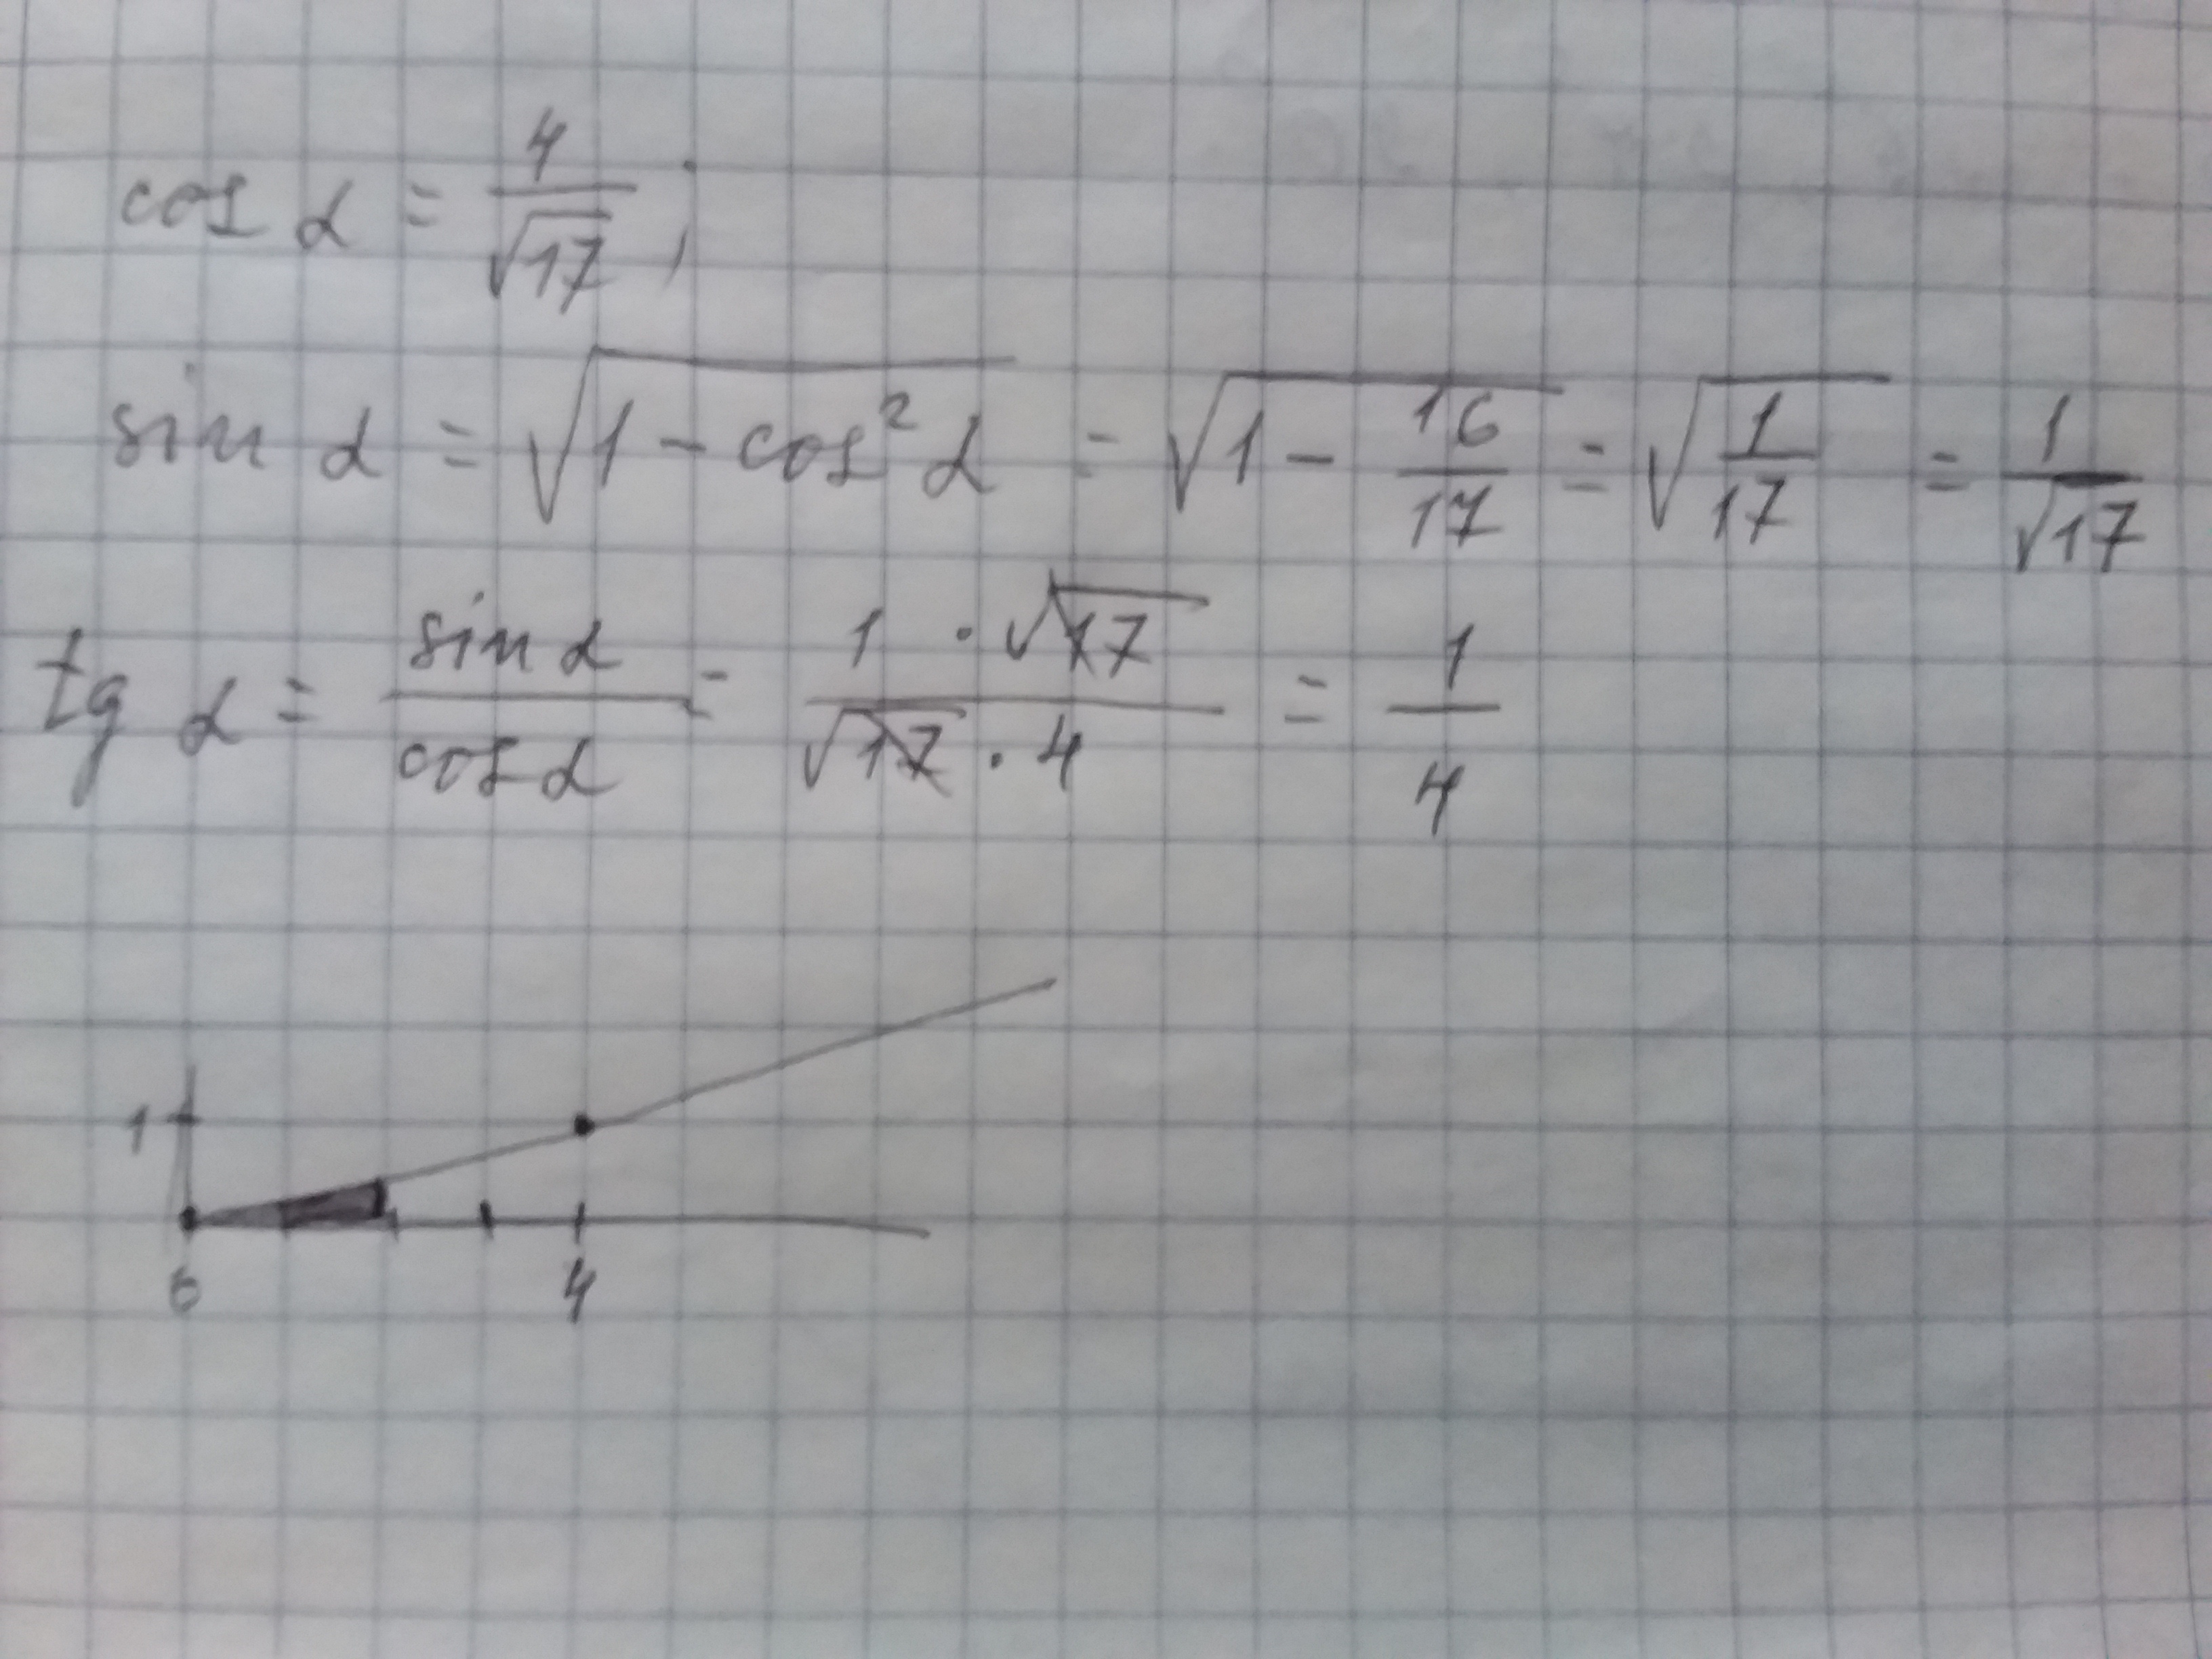 cos α = 4/√17 ;
sin α = √(1 - cos² α) = √(1 - 16/17) = √(1/17) = 1/√17
tg α = sin α / cos α = 1 · √17 / √17 · 4 = 1/4
1
0 4